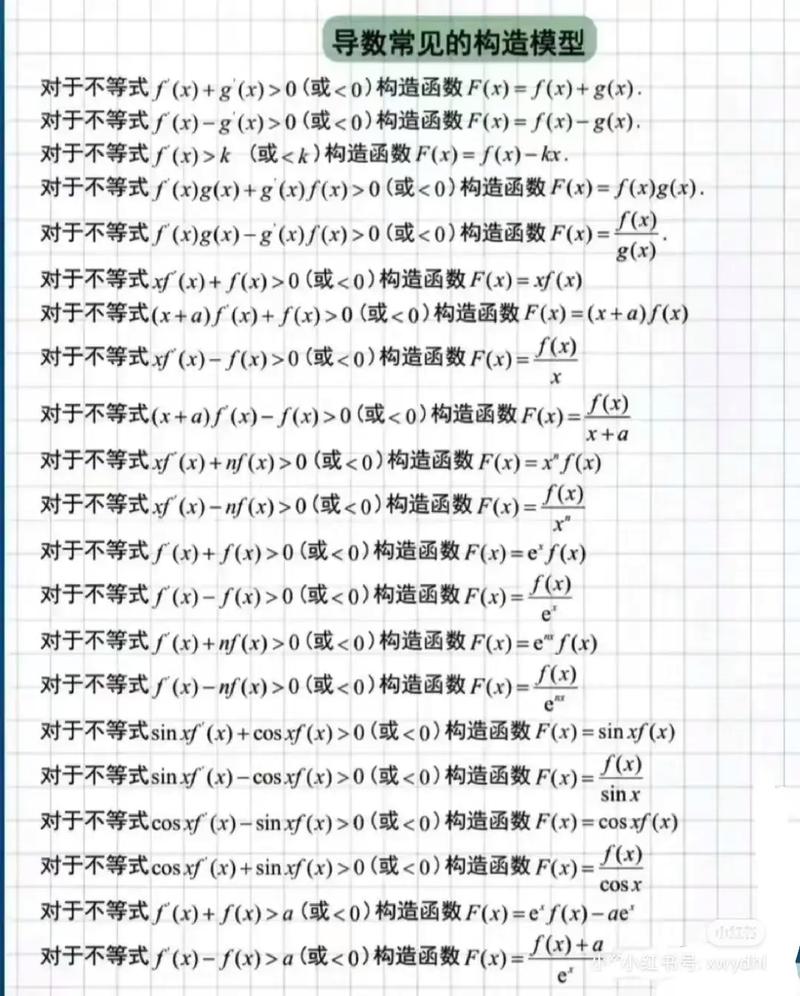 导数常见的构造模型
对于不等式f′(x)+g′(x)>0(或<0)构造函数F(x)=f(x)+g(x).
对于不等式f′(x)−g′(x)>0(或<0)构造函数F(x)=f(x)−g(x).
对于不等式f′(x)>k (或<k)构造函数F(x)=f(x)−kx.
对于不等式f′(x)g(x)+g′(x)f(x)>0(或<0)构造函数F(x)=f(x)g(x).
对于不等式f′(x)g(x)−g′(x)f(x)>0(或<0)构造函数F(x)=f(x)/g(x).
对于不等式xf′(x)+f(x)>0(或<0)构造函数F(x)=xf(x)
对于不等式(x+a)f′(x)+f(x)>0(或<0)构造函数F(x)=(x+a)f(x)
对于不等式xf′(x)−f(x)>0(或<0)构造函数F(x)=f(x)/x
对于不等式(x+a)f′(x)−f(x)>0(或<0)构造函数F(x)=f(x)/(x+a)
对于不等式xf′(x)+nf(x)>0(或<0)构造函数F(x)=xⁿf(x)
对于不等式xf′(x)−nf(x)>0(或<0)构造函数F(x)=f(x)/xⁿ
对于不等式f′(x)+f(x)>0(或<0)构造函数F(x)=eˣf(x)
对于不等式f′(x)−f(x)>0(或<0)构造函数F(x)=f(x)/eˣ
对于不等式f′(x)+nf(x)>0(或<0)构造函数F(x)=eⁿˣf(x)
对于不等式f′(x)−nf(x)>0(或<0)构造函数F(x)=f(x)/eⁿˣ
对于不等式sinxf′(x)+cosxf(x)>0(或<0)构造函数F(x)=sinxf(x)
对于不等式sinxf′(x)−cosxf(x)>0(或<0)构造函数F(x)=f(x)/sinx
对于不等式cosxf′(x)−sinxf(x)>0(或<0)构造函数F(x)=cosxf(x)
对于不等式cosxf′(x)+sinxf(x)>0(或<0)构造函数F(x)=f(x)/cosx
对于不等式f′(x)+f(x)>a(或<0)构造函数F(x)=eˣf(x)−aeˣ
对于不等式f′(x)−f(x)>a(或<0)构造函数F(x)=(f(x)+a)/eˣ
小红书
小红书号: xwydhl